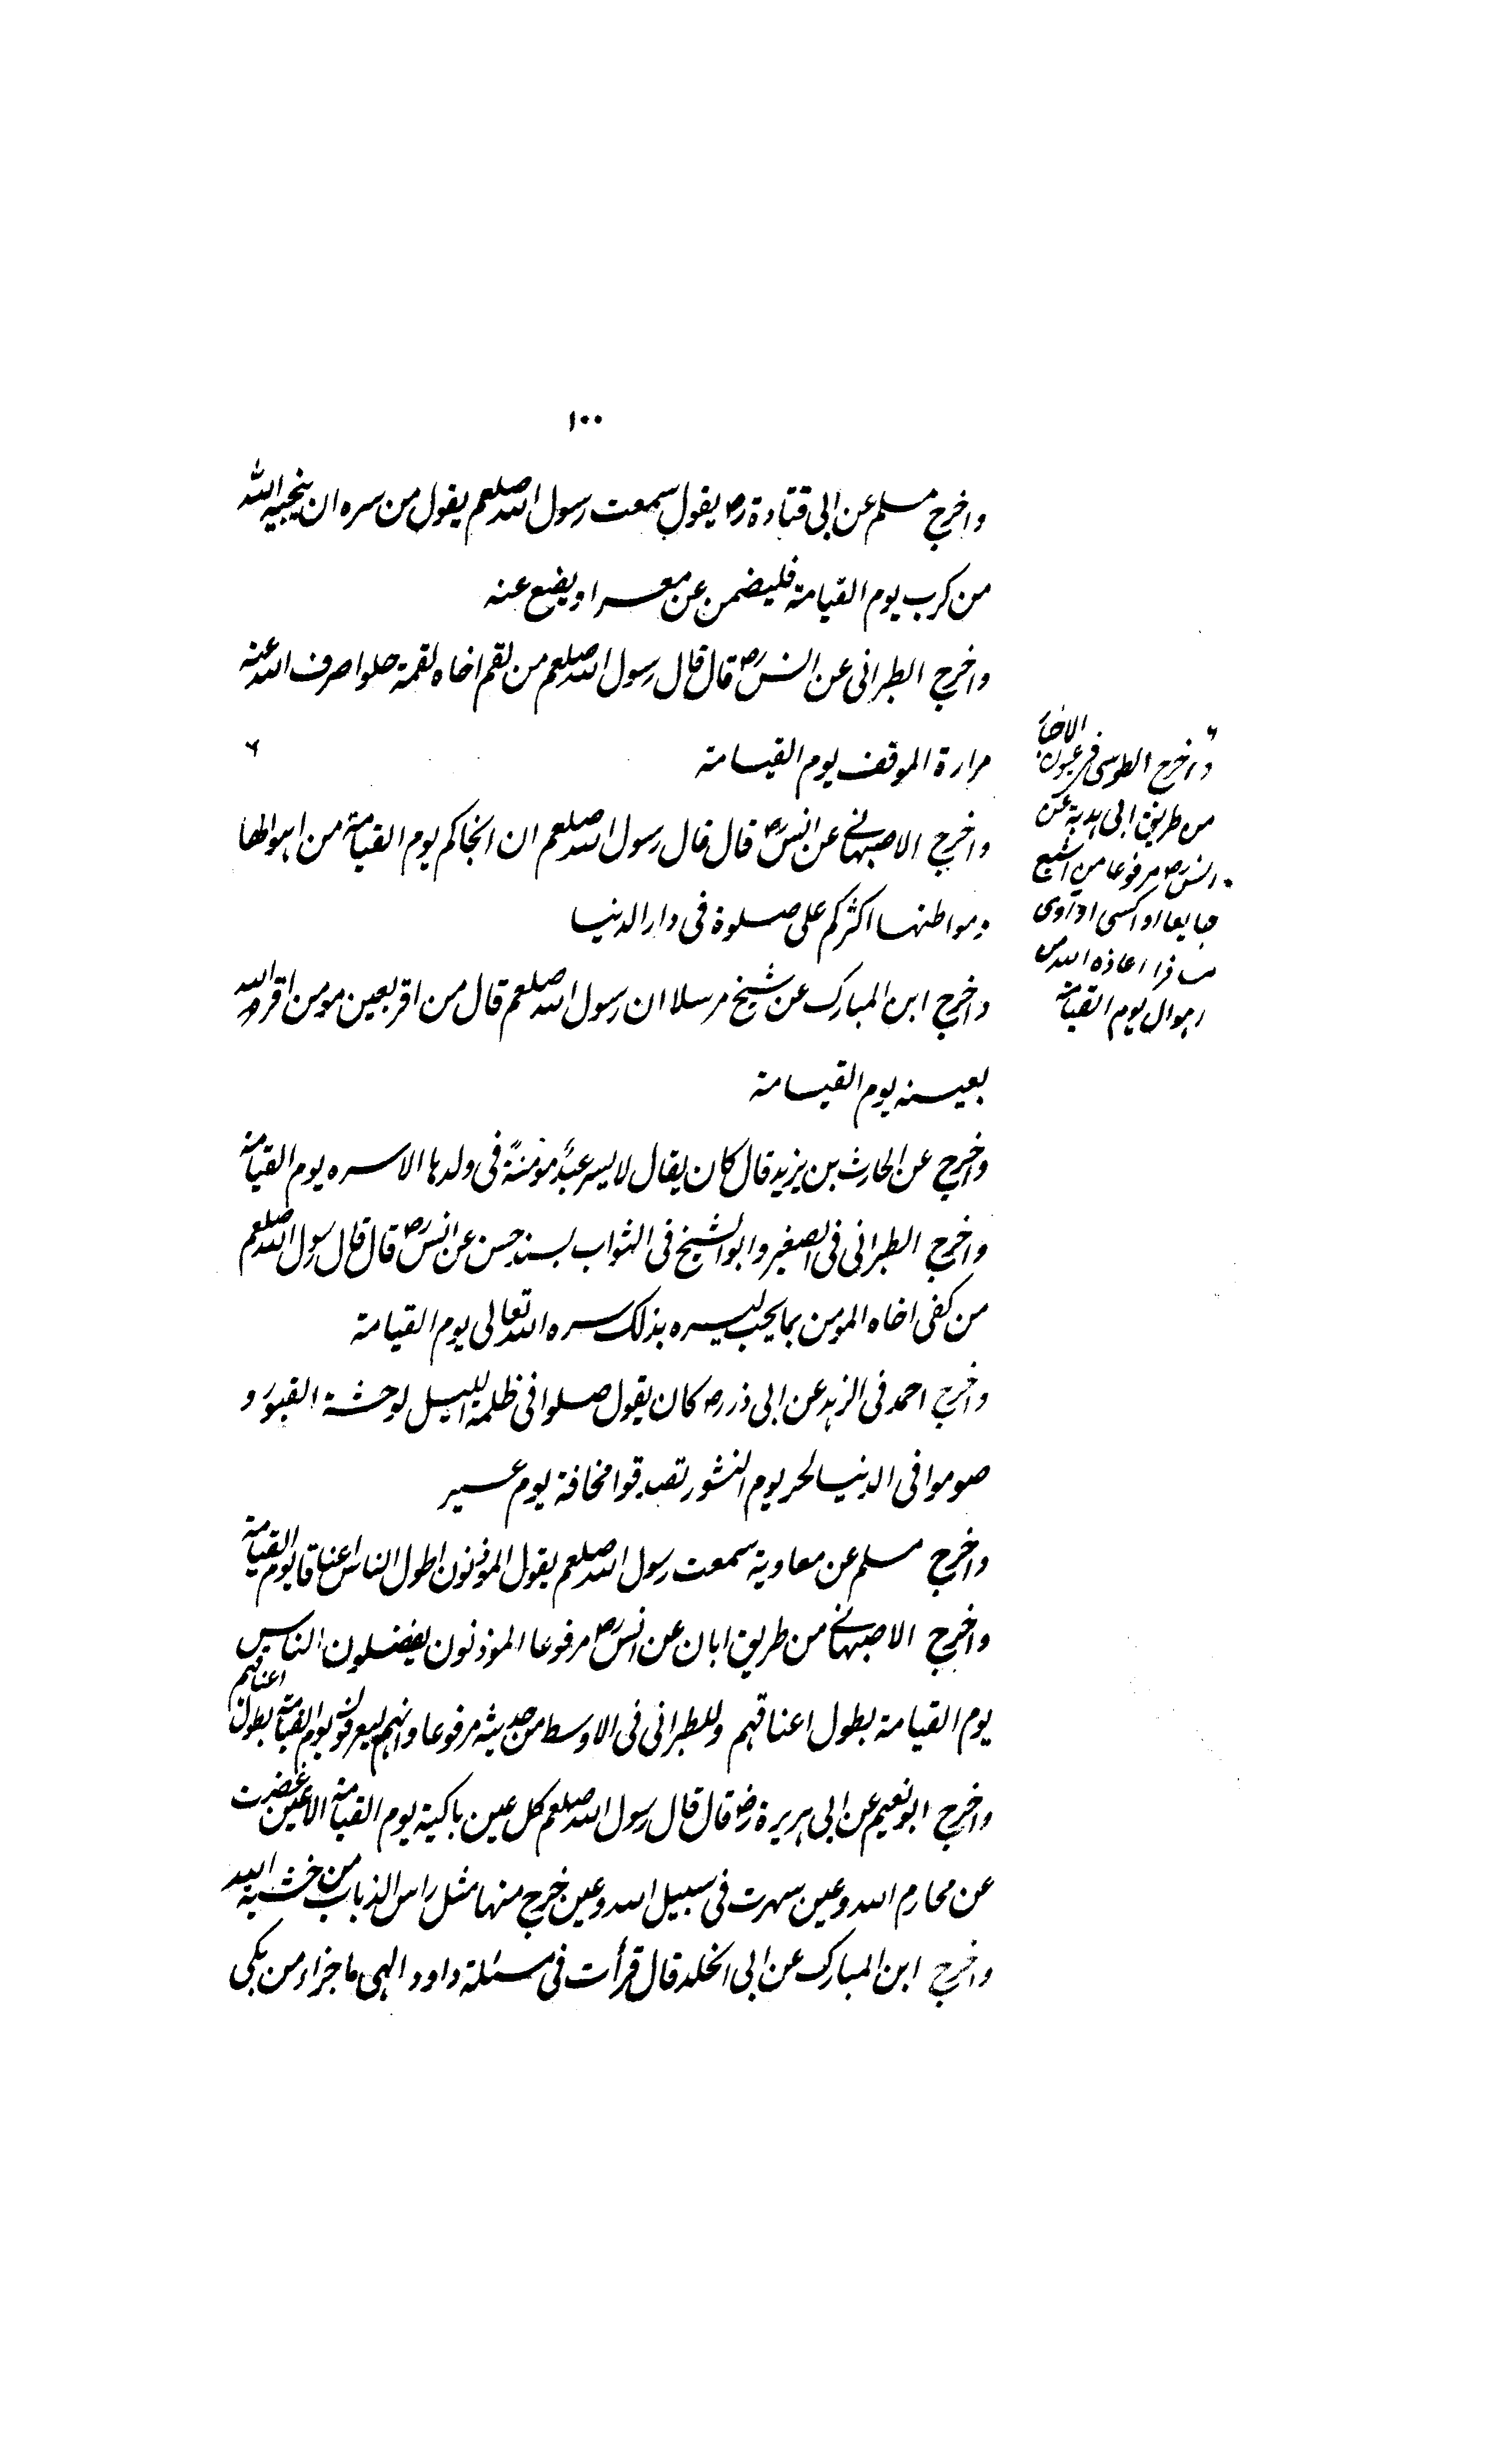 ١٠٠
واخرج مسلم عن ابى قتادة رض يقول سمعت رسول الله صلعم يقول من سره ان ينجيه الله
من كرب يوم القيامة فليضمن عن معسر او يضع عنه
واخرج الطبرانى عن انس رض قال قال رسول الله صلعم من لقم اخاه لقمة حلوا صرف الله عنه
مرارة الموقف يوم القيامة ٦
واخرج الاصبهانى عن انس رض قال قال رسول الله صلعم ان انجاكم يوم القيامة من اهوالها
ومواطنها اكثركم على صلوة فى دار الدنيا
واخرج ابن المبارك عن شيخ مرسلا ان رسول الله صلعم قال من اقر بعين مومن اقر الله
بعينه يوم القيامة
واخرج عن الحارث بن يزيد قال كان يقال لا يسر عبد مؤمنة فى ولدها الا سره يوم القيامة
واخرج الطبرانى فى الصغير وابو الشيخ فى الثواب بسند حسن عن انس رض قال قال رسول الله صلعم
من كفى اخاه المومن بما يحب ليسره بذلك سره الله تعالى يوم القيامة
واخرج احمد فى الزهد عن ابى ذر رض كان يقول صلوا فى ظلمة الليل لوحشة القبور و
صوموا فى الدنيا لحر يوم النشور تصدقوا مخافة يوم عسير
واخرج مسلم عن معاوية سمعت رسول الله صلعم يقول المؤذنون اطول الناس اعناقا يوم القيامة
واخرج الاصبهانى من طريق ابان عن انس رض مرفوعا المؤذنون يفضلون الناس
يوم القيامة بطول اعناقهم وللطبرانى فى الاوسط من حديثه مرفوعا وانهم ليعرفون يوم القيامة بطول اعناقهم
واخرج ابو نعيم عن ابى هريرة رض قال قال رسول الله صلعم كل عين باكية يوم القيامة الا عين غضت
عن محارم الله وعين سهرت فى سبيل الله وعين خرج منها مثل راس الذباب من خشية الله
واخرج ابن المبارك عن ابى الخلد قال قرأت فى مسئلة داود الهى ما جزاء من بكى
٦ واخرج الطوسى فى عيون الاخبار
من طريق ابى هدبة عن
انس رض مرفوعا من اشبع
جايعا او اكسى او اوى
مسافرا اعاذه الله من
اهوال يوم القيامة